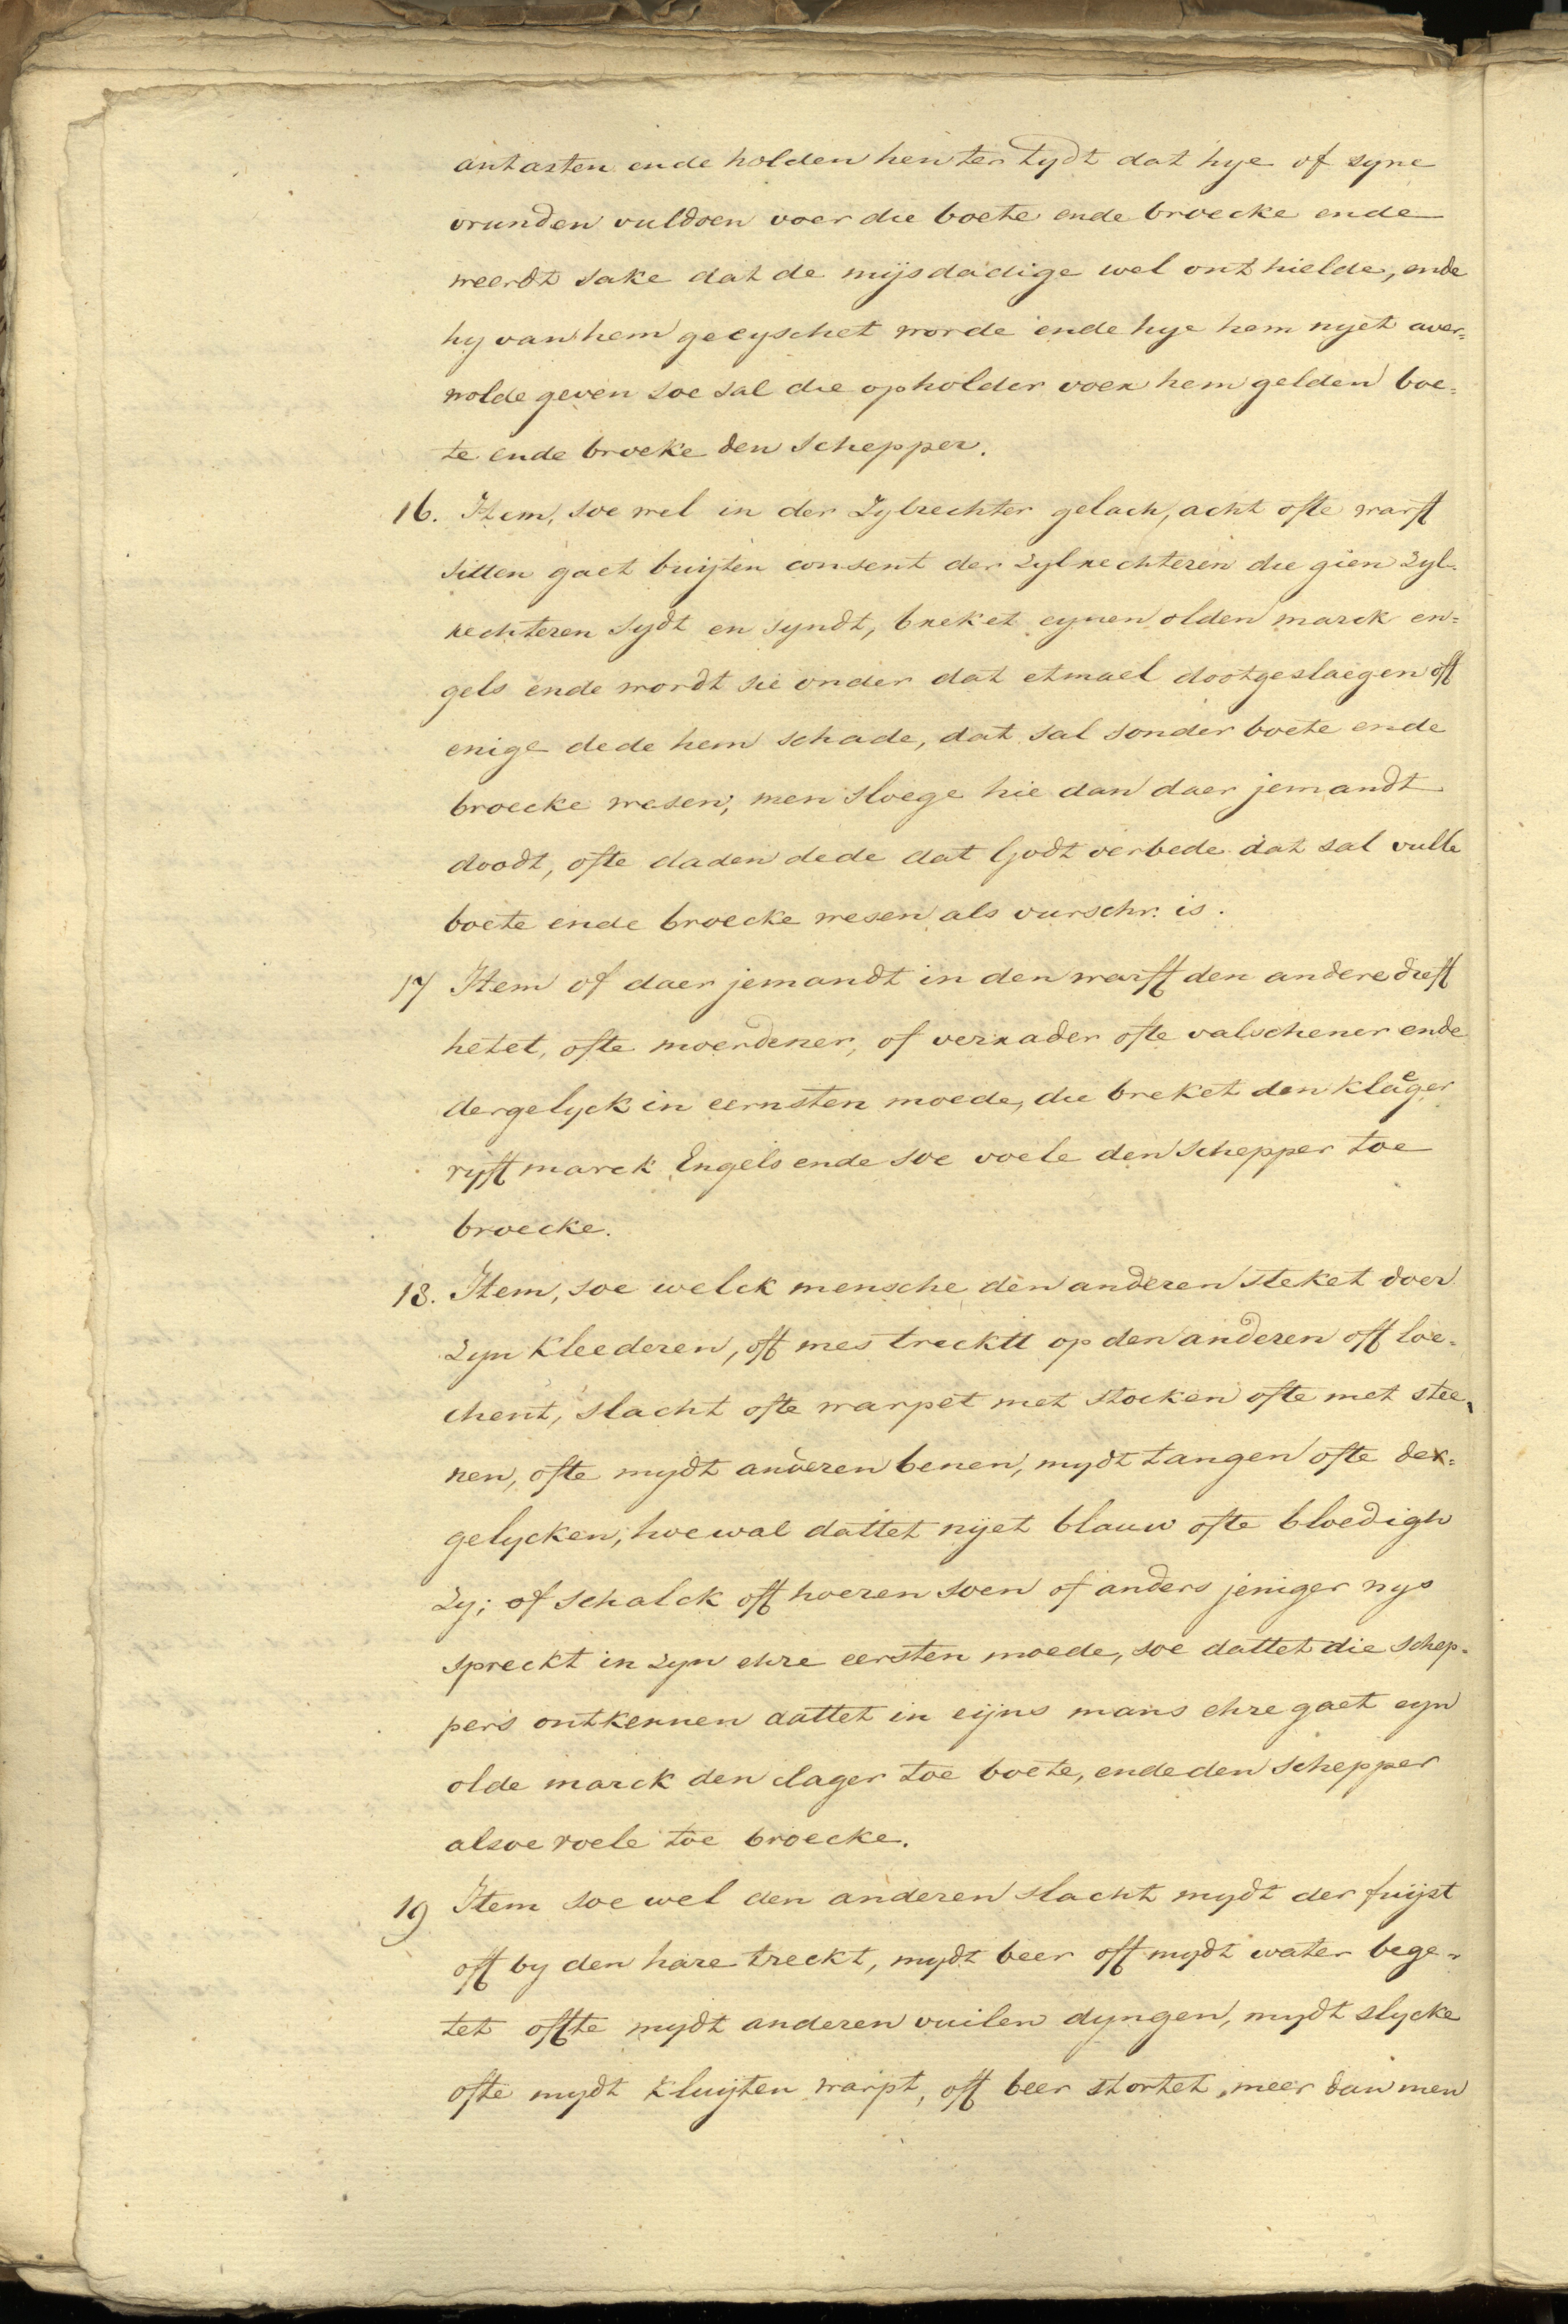 antasten ende holden hen ter tydt dat hye of syne
vrunden vuldoen voer die boete ende broecke ende
weerdt sake dat de mijsdadige wel onthielde, ende
hy van hem geeyschet worde ende hye hem nyet aver=
wolde geven soe sal die opholder voer hem gelden boe=
te ende broeke den Schepper.
16. Item, soe wel in der Zylrechter gelach, acht ofte warft
sitten gaet buijten consent der zylrechteren die gien zyl-
rechteren sydt en syndt, breket eynen olden marck en=
gels ende wordt sie onder dat etmael dootgeslaegen off
enige dede hem schade, dat sal sonder boete ende
broecke wesen; men sloege hie dan daer jemandt
doodt, ofte daden dede dat Godt verbede dat sal vulle
boete ende broecke wesen als vurschr. is.
17 Item of daer jemandt in den warff den andere dieff
hetet, ofte moerdener, of verrader ofte valschener ende
dergelyck in eernsten moede, die breket den klaeger
vyff marck Engels ende soe voele den Schepper toe
broecke.
18. Item, soe welck mensche den anderen steket doer
zyn kleederen, off mes trecktt op den anderen off loe-
chent, slacht ofte warpet met stocken ofte met stee-
nen, ofte mydt anderen benen, mydt tangen ofte der=
gelycken, hoewal dattet nyet blauw ofte bloedigh
zy; of schalck off hoeren soen of anders jeniger nys
spreckt in zyn ehre eersten moede, soe dattet die schep-
pers ontkennen dattet in eijns mans ehre gaet eyn
olde marck den clager toe boete, ende den schepper
alsoe voele toe broecke.
19 Item soe wel den anderen slacht mydt der fuijst
off by den hare treckt, mydt beer off mydt water bege-
tet offte mydt anderen vuilen dyngen, mydt slycke
ofte mydt kluijten warpt, off beer stortet, meer dan men